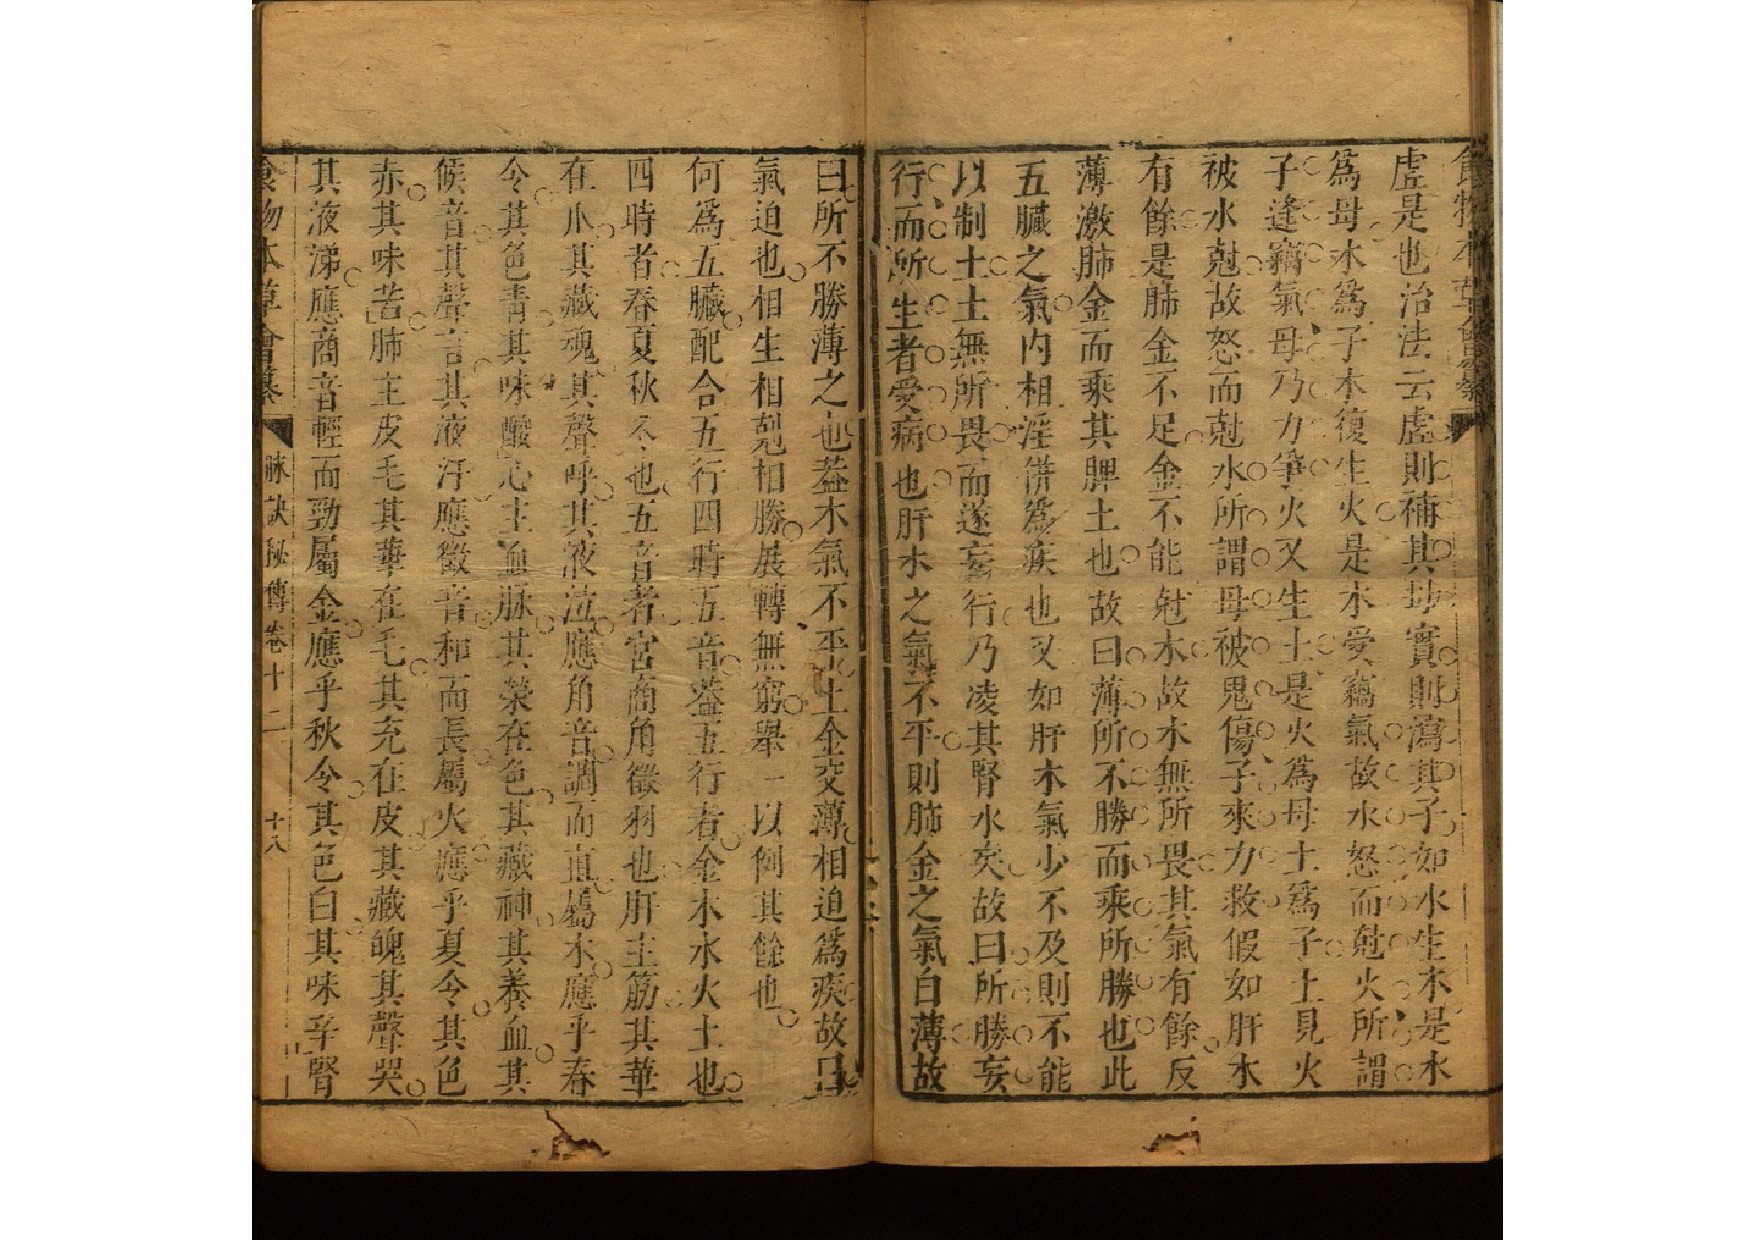 食物本草會纂
虛是也治法云虛則補其母實則瀉其子如水生木是水
爲母木爲子木復生火是木受竊氣故水怒而尅火所謂
子逢竊氣母乃力爭火又生土是火爲母土爲子土見火
被水尅故怒而尅水所謂母被鬼傷子來力救假如肝木
有餘是肺金不足金不能尅木故木無所畏其氣有餘反
薄激肺金而乘其脾土也故曰薄所不勝而乘所勝也此
五臟之氣内相淫倂爲疾也又如肝木氣少不及則不能
以制土土無所畏而遂妄行乃凌其腎水矣故曰所勝妄
行而所生者受病也肝木之氣不平則肺金之氣自薄故
曰所不勝薄之也葢木氣不平土金交薄相迫爲疾故曰
氣迫也相生相剋相勝展轉無窮舉一以例其餘也
何爲五臟配合五行四時五音葢五行者金木水火土也
四時者春夏秋冬也五音者宮商角徵羽也肝主筋其華
在爪其藏魂其聲呼其液泣應角音調而直屬木應乎春
令其色青其味酸心主血脉其榮在色其藏神其養血其
候音其聲言其液汗應徵音和而長屬火應乎夏令其色
赤其味苦肺主皮毛其華在毛其充在皮其藏魄其聲哭
其液涕應商音輕而勁屬金應乎秋令其色白其味辛腎
食物本草會纂 脉訣秘傳卷十二 十八